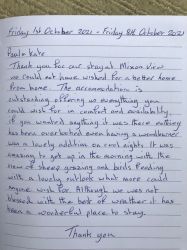 Friday 1st October 2021 - Friday 8th October 2021
Paul & Kate
Thank you for our stay at Mixon View
we could not have wished for a better home
from home. The accomodation is
outstanding offering us everything you
could wish for in comfort and availability
if you wanted anything it was there nothing
has been overlooked even having a woodburner
was a lovely addition on cool nights. It was
amazing to get up in the morning with the
view of sheep grazing and birds feeding
with a lovely outlook what more could
anyone wish for. Although we was not
blessed with the best of weather it has
been a wonderful place to stay.
Thank you